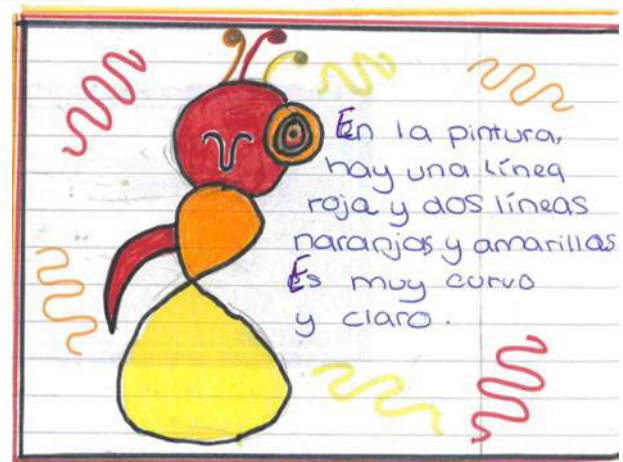 En la pintura,
hay una línea
roja y dos líneas
naranjas y amarillas
Es muy curvo
y claro.